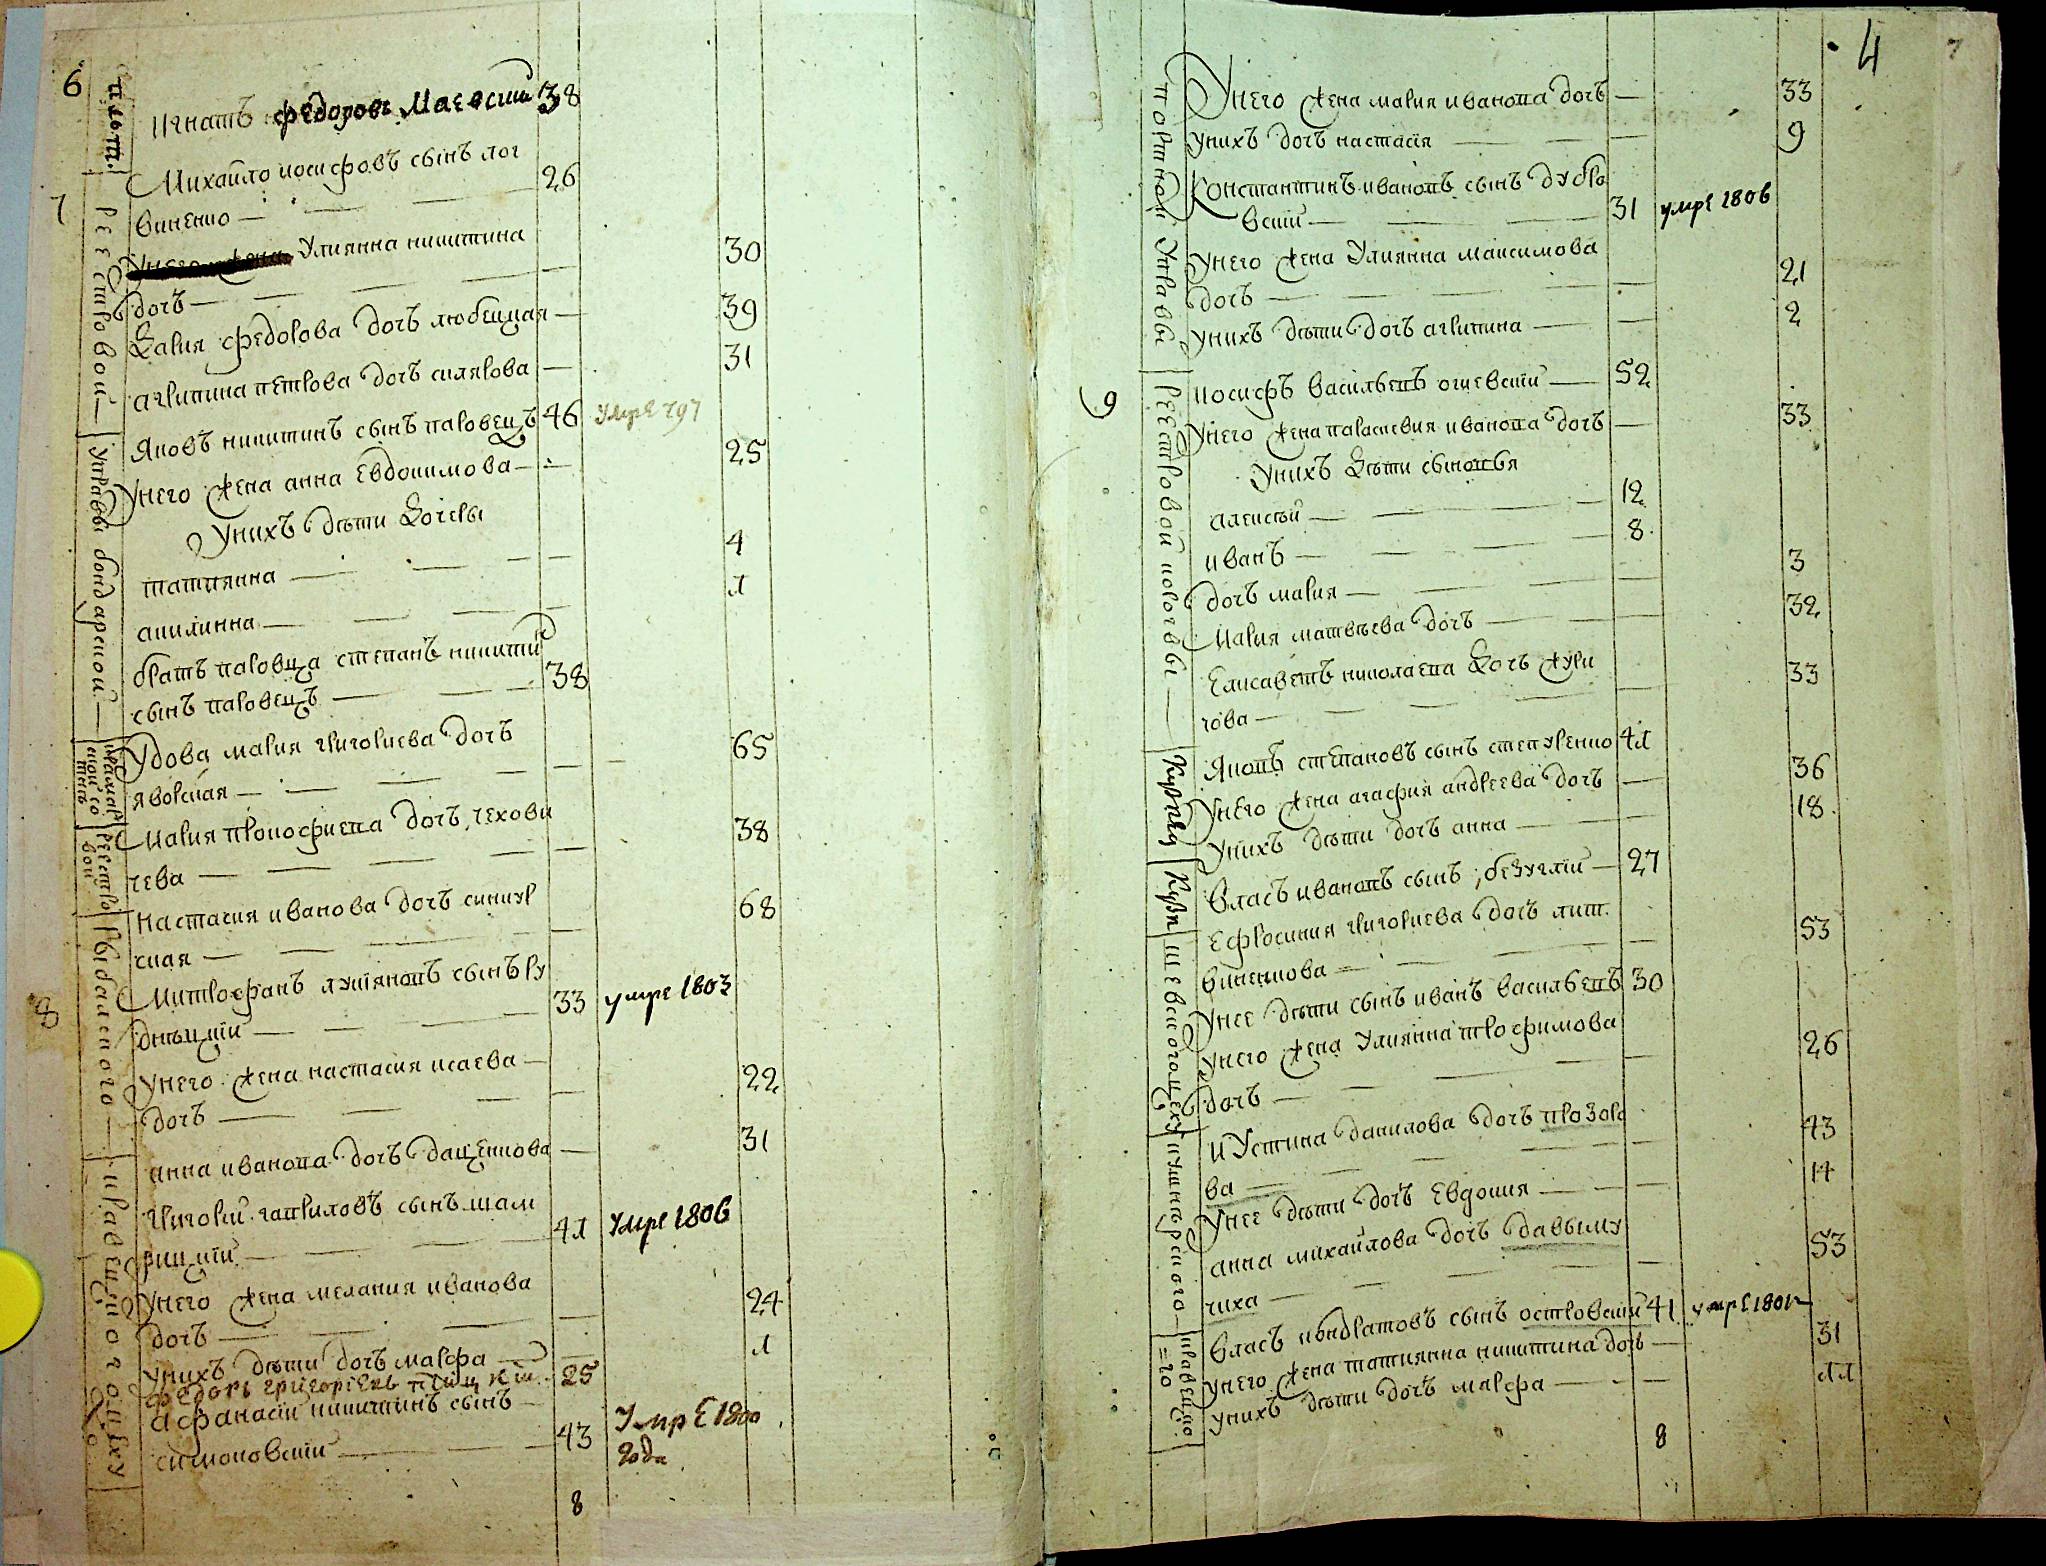 6
Игнатъ федоровъ Маевский 38
7
Михайло иосифовъ сынъ лог
виненко — 26
Унего жена Улиянна никитина
дочъ — 30
Дария федорова дочъ любецкая — 39
агрипина петрова дочъ силярова — 31
Яковъ никитинъ сынъ паровецъ 46 умре 797
Унего жена анна Евдокимова — 25
Унихъ дѣти дочеры
татиянна — 4
акилинна — 1
братъ паровца степанъ никити
сынъ паровецъ — 38
Удова мария григориева дочъ
яворская — 65
Мария прокофиева дочъ, чехови
чева — 38
Настасия иванова дочъ синиур
ская — 68
8
Митрофанъ лукіяновъ сынъ ру
дницкій — 33 умре 1803
Унего жена настасия исаева —
дочъ — 22
анна иванова дочъ даценкова — 31
Григорій гавриловъ сынъ шам
рицкій — 41 умре 1806
Унего жена мелания иванова
дочъ — 24
Унихъ дѣти дочъ марфа — 1
федоръ григориевъ 25
афанасій никитинъ сынъ —
симоновскій — 43 Умре 1800
года
8
реестровой
Управы бондарской —
реестровой
рыбалского —
кравецкого цеху
4
7
Унего жена мария иванова дочъ — 33
Унихъ дочъ настасія — 9
Константинъ ивановъ сынъ дубро
вскій — 31 умре 1806
Унего жена Улиянна максимова
дочъ — 21
Унихъ дѣти дочъ агрипина — 2
9
Иосифъ васильевъ огиевскій — 52
Унего жена параскевия иванова дочъ — 33
Унихъ дѣти сыновья
алексѣй — 12
иванъ — 8
дочъ мария — 3
Мария матвѣева дочъ — 32
Елисаветъ николаева дочъ жури
гова — 33
Яковъ степановъ сынъ степуренко 41
Унего жена агафия андреева дочъ — 36
Унихъ дѣти дочъ анна — 18
Власъ ивановъ сынъ, безуглій — 27
Ефросиния григориева дочъ лит
виненкова — 53
Унее дѣти сынъ иванъ васильевъ 30
Унего жена Улиянна трофимова
дочъ — 26
Иустина данилова дочъ прозоро
ва — 43
Унее дѣти дочъ Евдокия — 14
анна михайлова дочъ давыму
чиха — 53
Власъ кондратовъ сынъ островскій 41 умре 1801
Унего жена татиянна никитина дочъ — 31
Унихъ дѣти дочъ марфа — 11
8
портной Управы
реестровой
шевского цеху
кушнѣрского